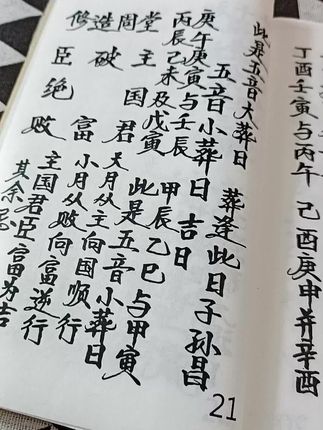 丁酉壬寅与丙午 己酉庚申并辛酉
此是五音大葬日 葬逢此日子孙昌
五音小葬日 吉日
庚午庚寅与壬辰 甲辰乙巳与甲寅
丙辰己未及戊寅 此是五音小葬日
修造周堂
臣 破 主
绝 国
败 富 君
大月从主向国顺行
小月从败向富逆行
主国君臣富为吉
其余忌
21